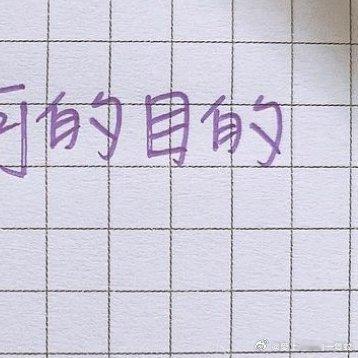 的目的